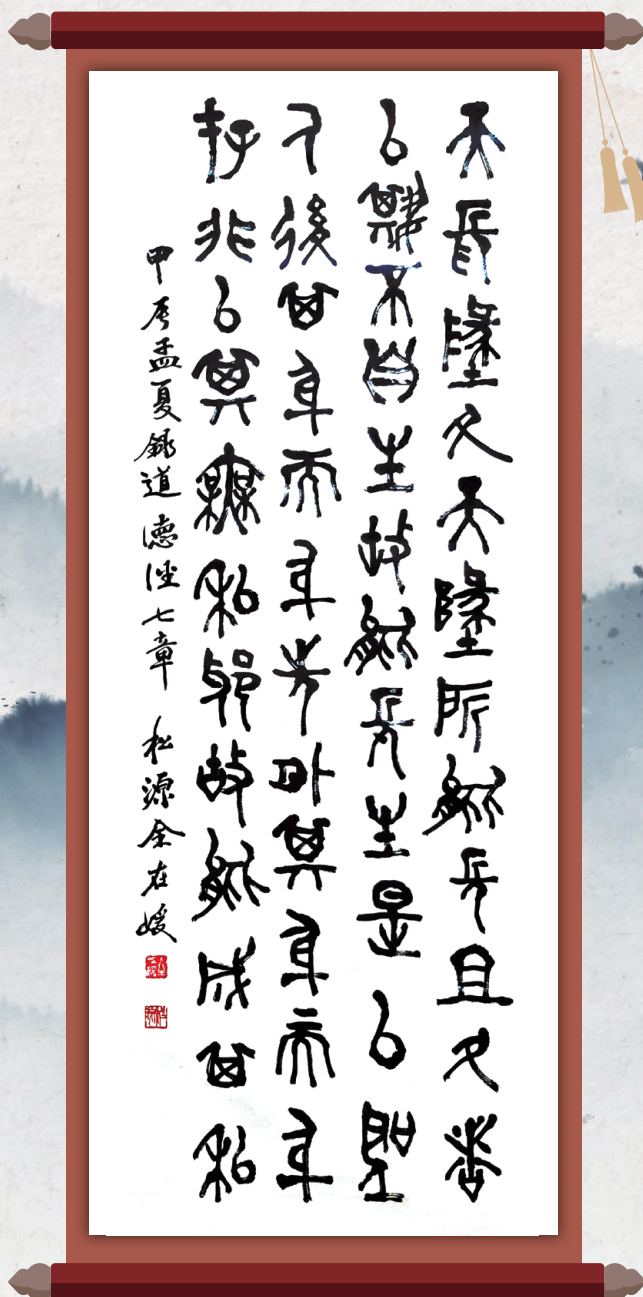 天長地久天地所能長且久者
以其不自生故能長生是以聖
人後其身而身先外其身而身
存非以其無私邪故能成其私
甲辰孟夏錄道德經七章 松源全在媛